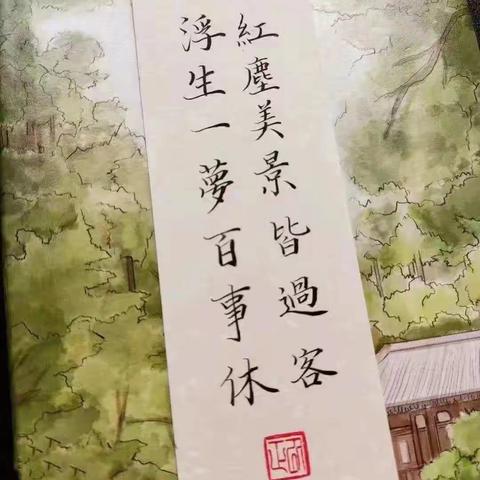 紅塵美景皆過客
浮生一夢百事休